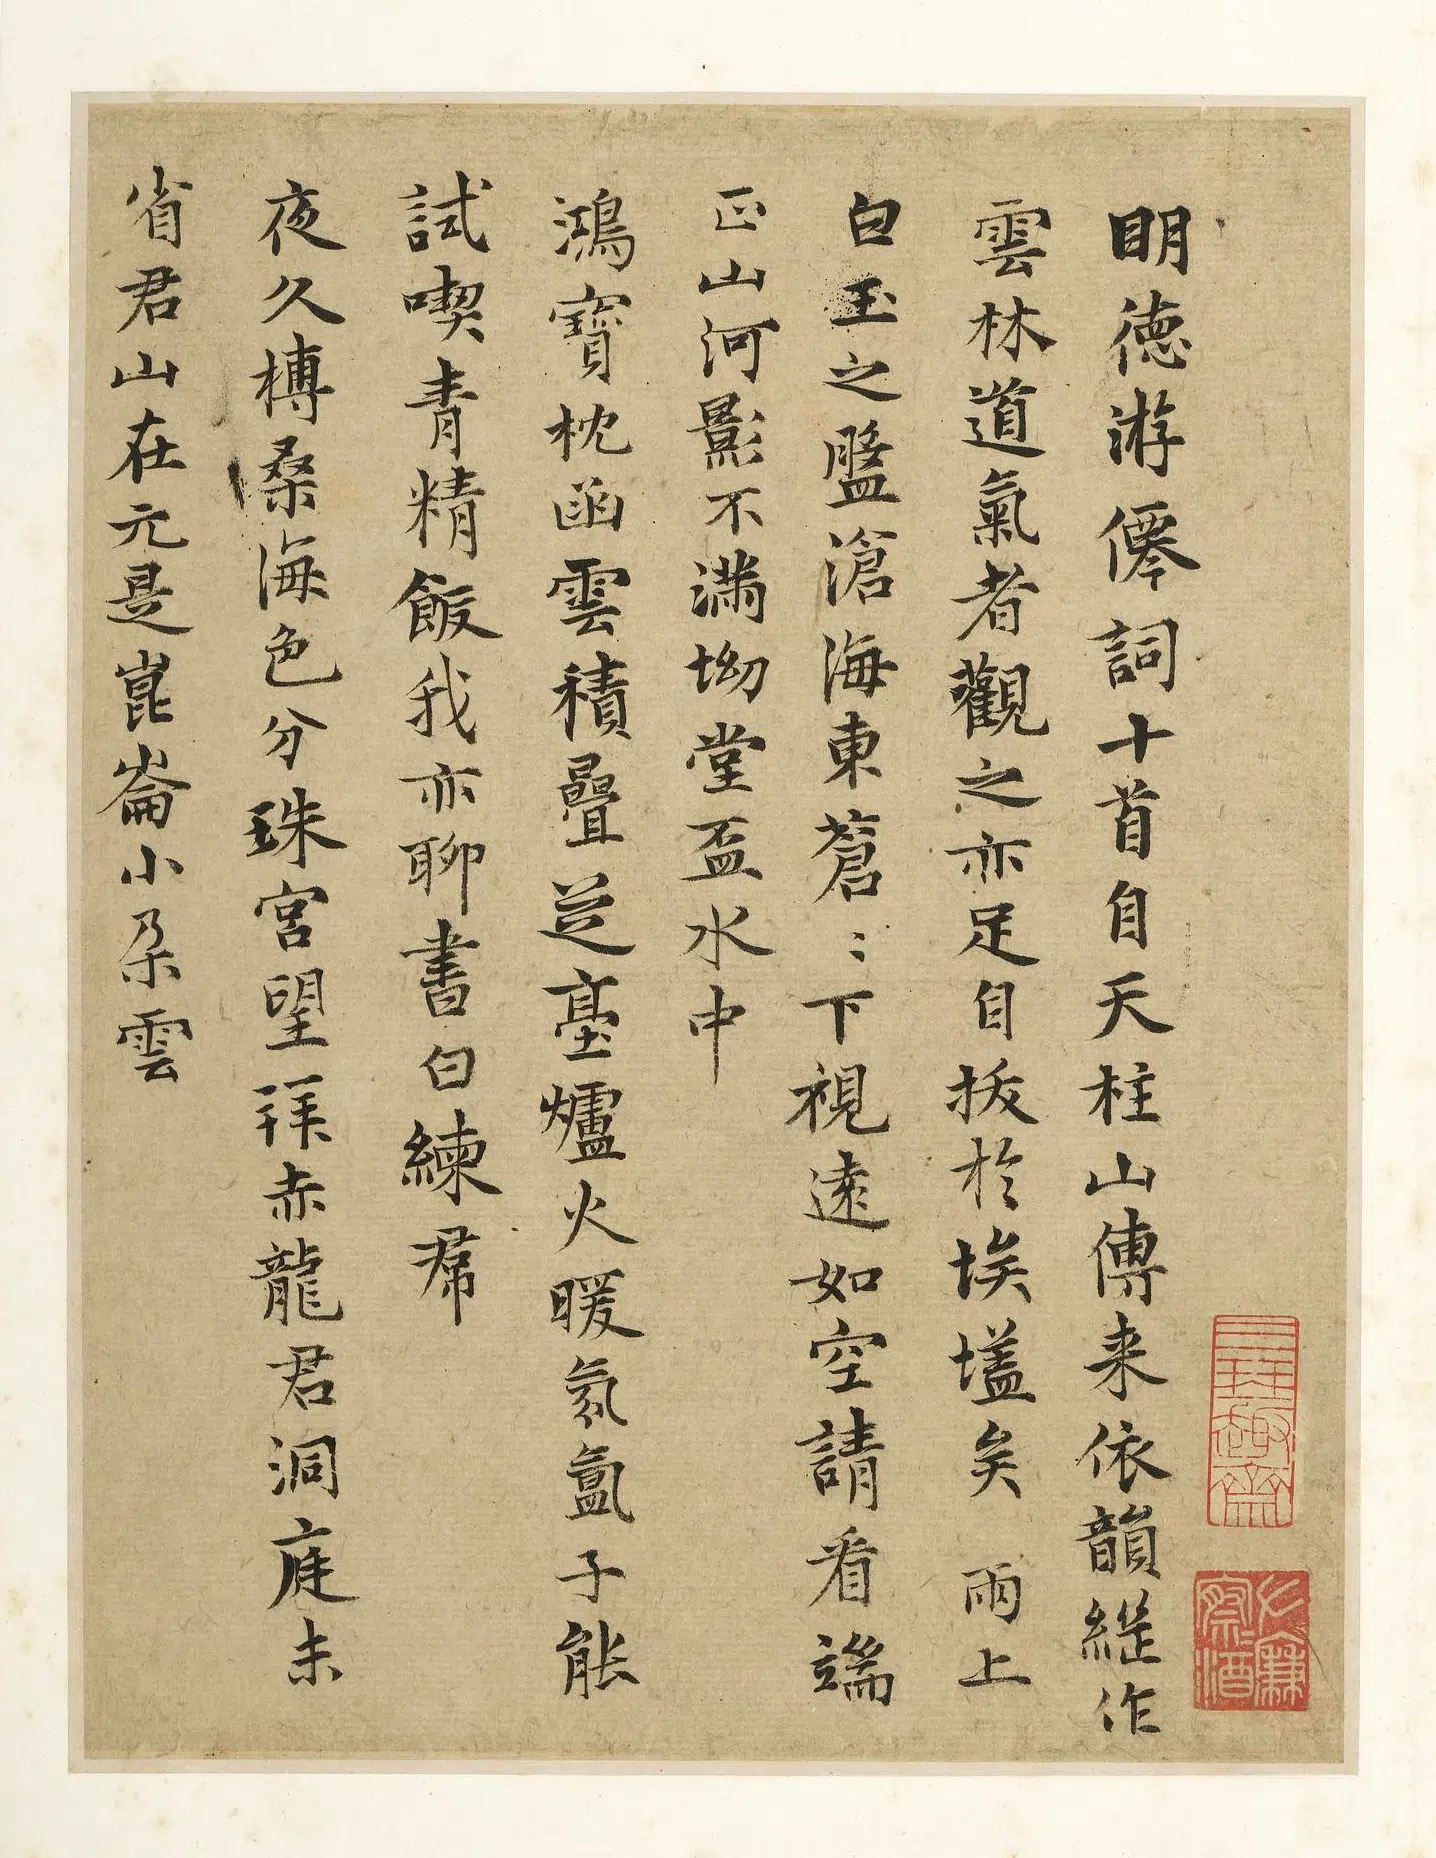 明德游僊詞十首自天柱山傳来依韻繼作
雲林道氣者觀之亦足自拔於埃壒矣 雨上
白玉之盤滄海東蒼〻下視遠如空請看端
正山河影不滿坳堂盃水中
鴻寶枕函雲積疊芝臺爐火暖氛氳子能
試喫青精飯我亦聊書白練帬
夜久榑桑海色分珠宮望拜赤龍君洞庭未
省君山在元是崑崙小朵雲